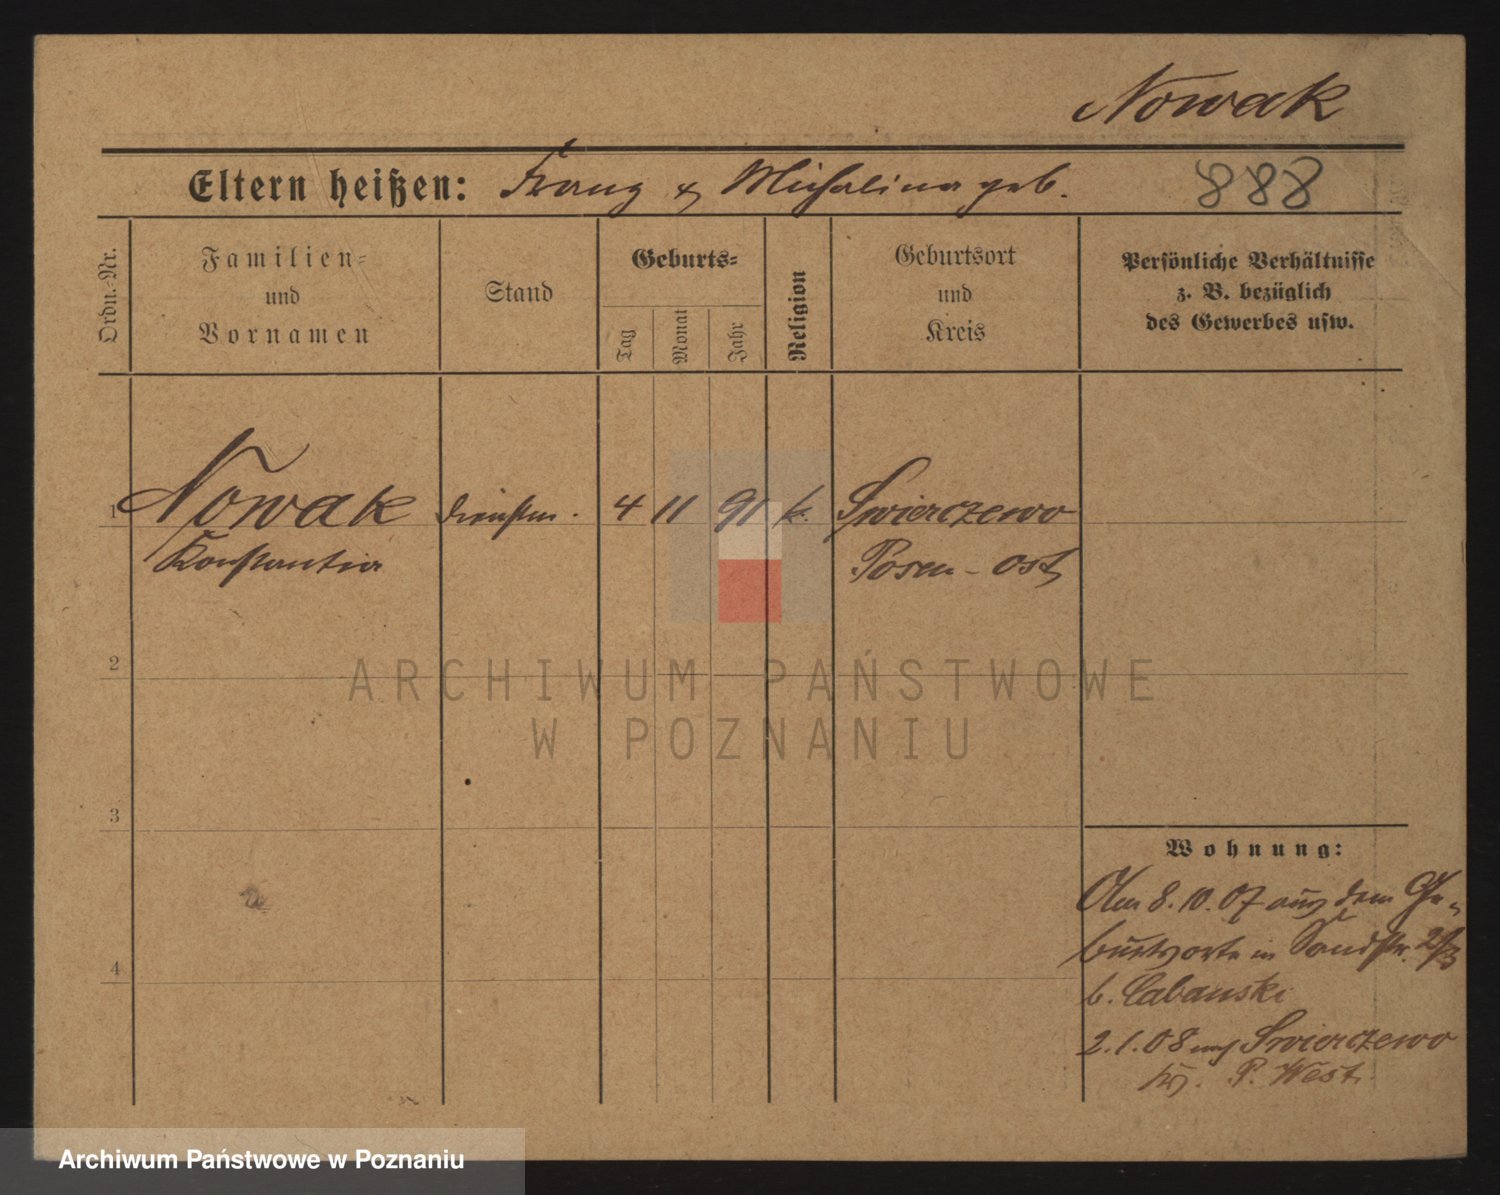 Nowak
Eltern heißen: Franz & Michalina geb. 888
Ordn.-Nr.
Familien-
und
Vornamen
Stand
Geburts-
Tag
Monat
Jahr
Religion
Geburtsort
und
Kreis
Persönliche Verhältnisse
z. B. bezüglich
des Gewerbes usw.
1 Nowak 4 11 91 k. Swierczewo
Konstantia Posen-Ost
2
ARCHIWUM PAŃSTWOWE
W POZNANIU
3
Wohnung:
Am 8.10.07 aus dem Ge-
burtsorte in Sandstr.
b. Cabanski
4
2.1.08 nach Swierczewo
P. West
Archiwum Państwowe w Poznaniu